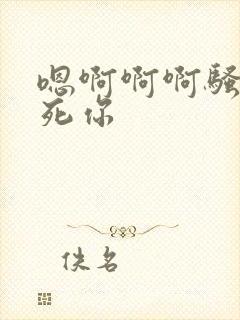 嗯啊啊啊骚
死你
佚名